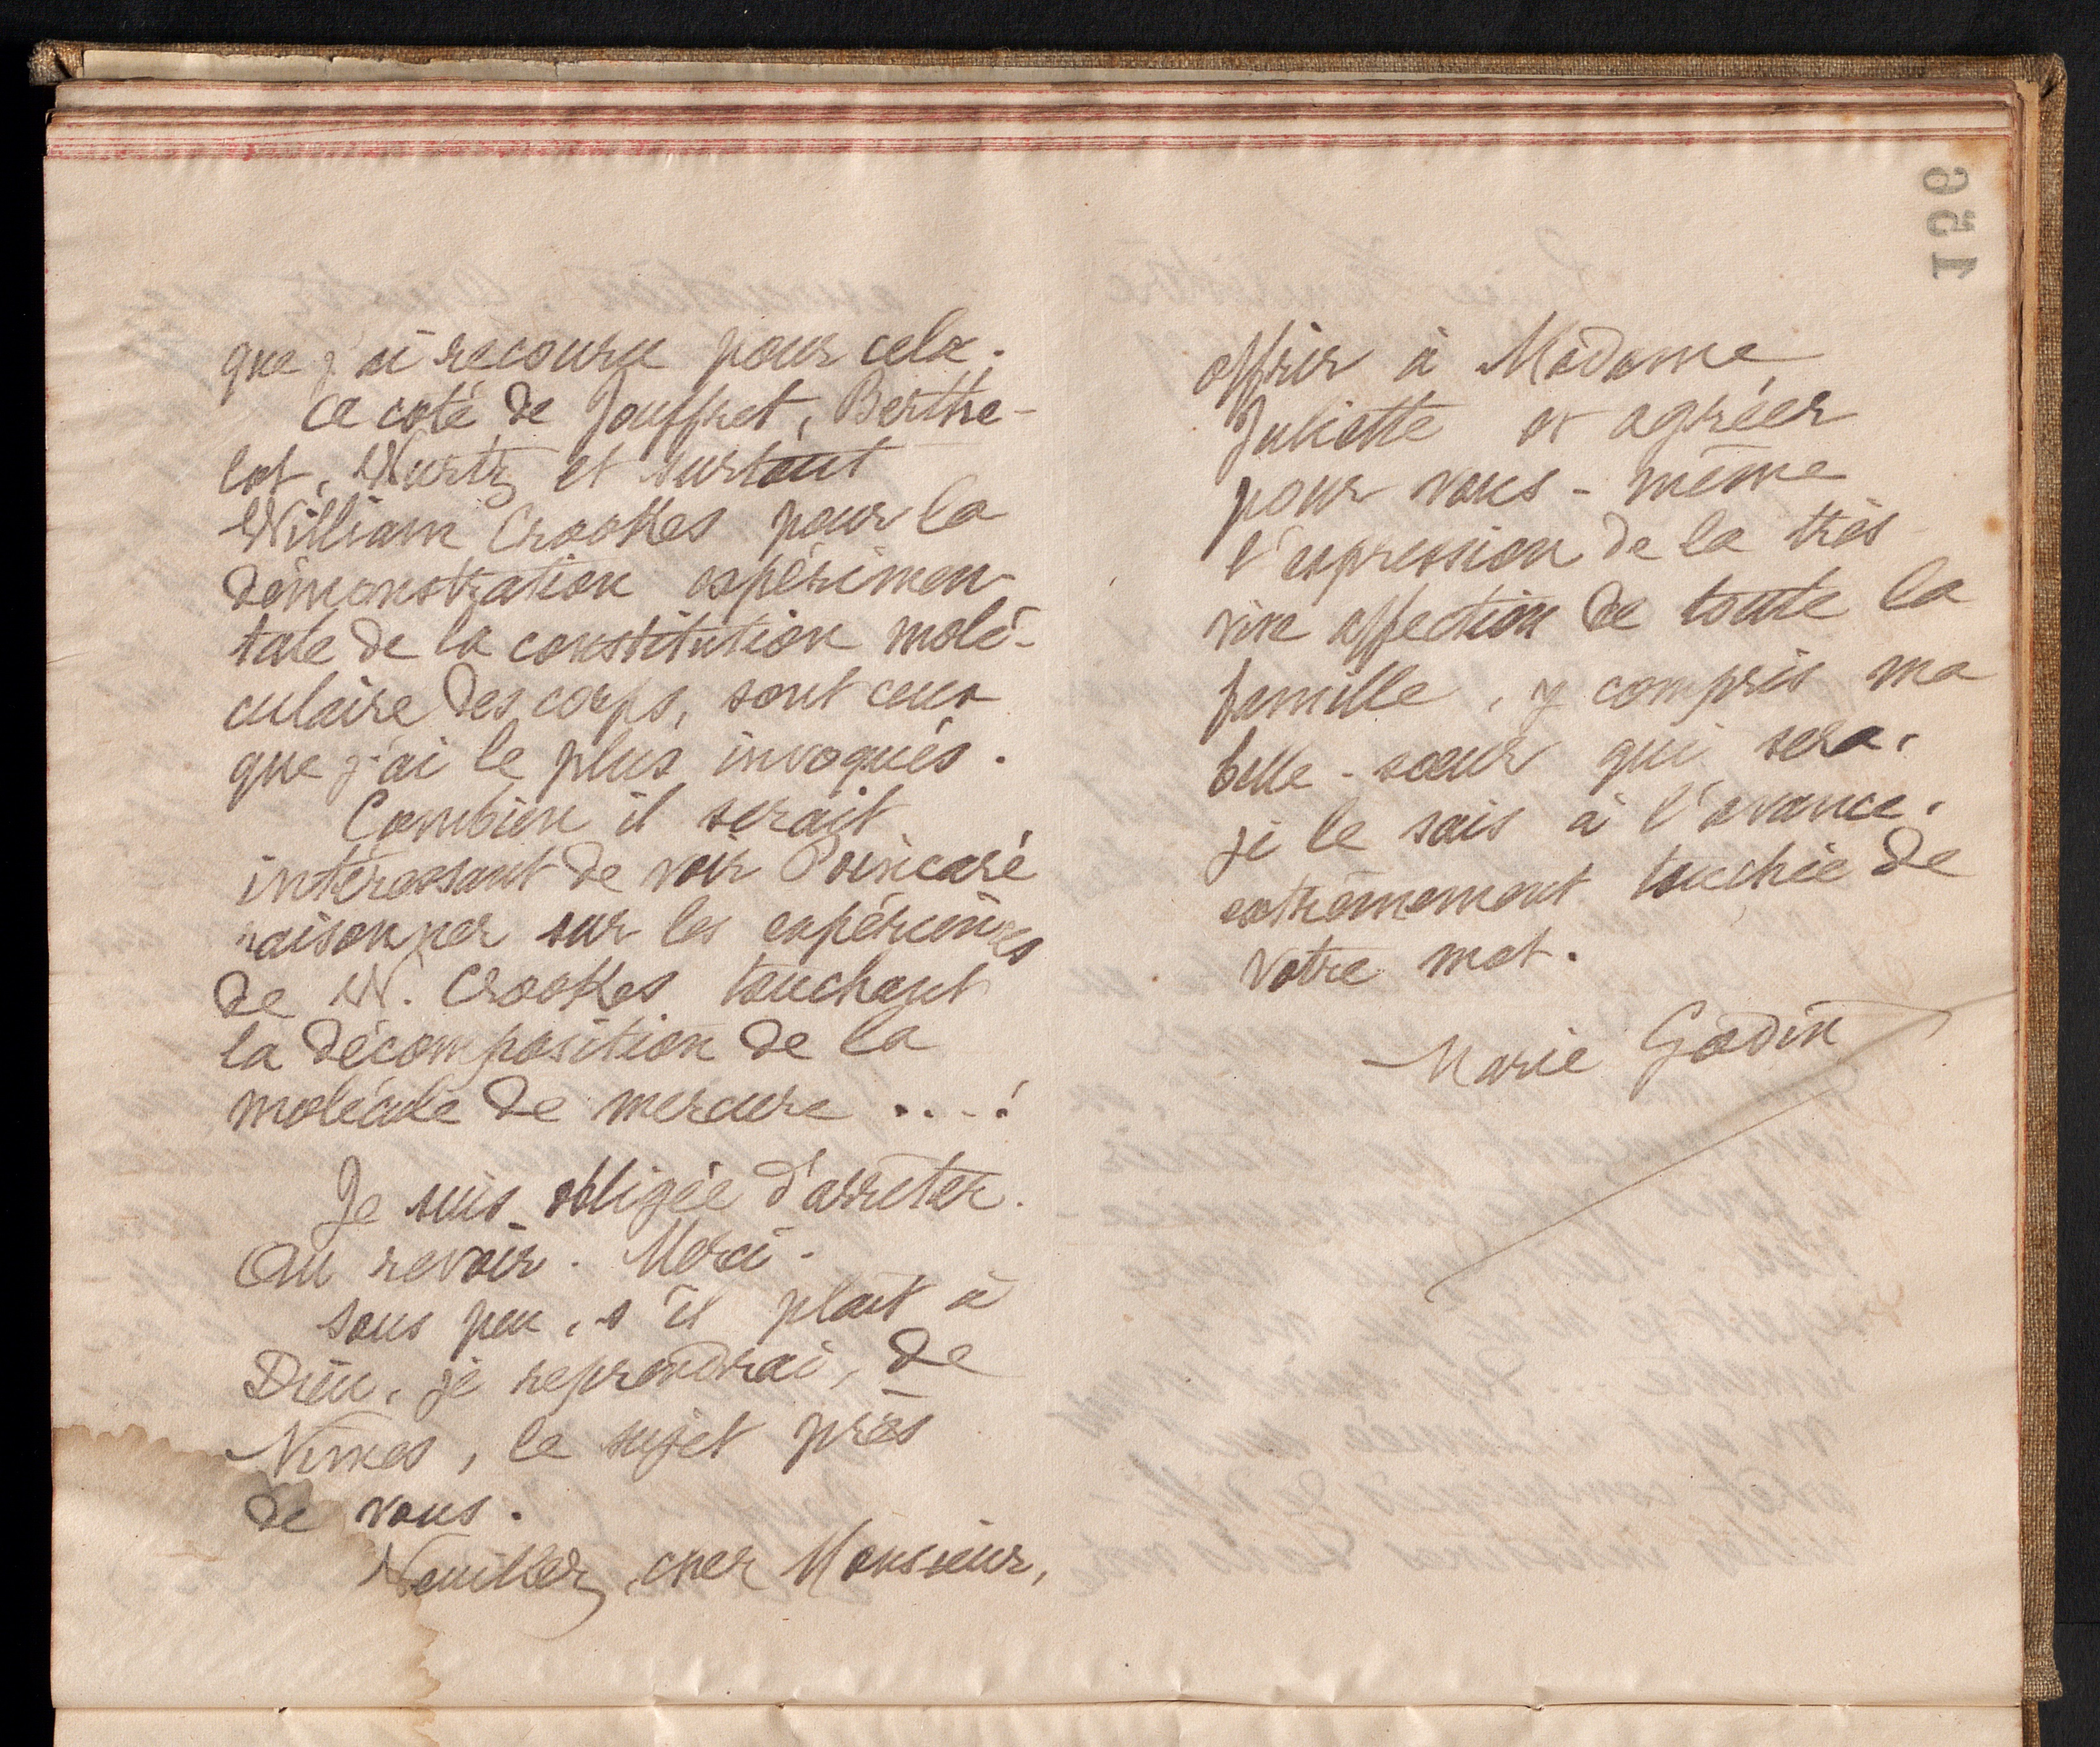 que j'ai recouru pour cela.
A coté de Jouffret, Berthe-
lot, Wurtz et surtout
William Crookes pour la
démonstration expérimen-
tale de la constitution molé-
culaire des corps, sont ceux
que j'ai le plus invoqués.
Combien il serait
intéressant de voir Poincaré
raisonner sur les expériences
de W. Crookes touchant
la décomposition de la
molécule de mercure ....!
Je suis obligée d'arrêter.
Au revoir. Merci.
Sous peu, s'il plaît à
Dieu, je reprendrai, de
Nîmes, le sujet près
de vous.
Veuillez, cher Monsieur,
offrir à Madame
Juliette et agréer
pour vous-même
l'expression de la très
vive affection de toute la
famille, y compris ma
belle-sœur qui sera,
je le sais à l'avance,
extrêmement touchée de
votre mot.
Marie Godin
156